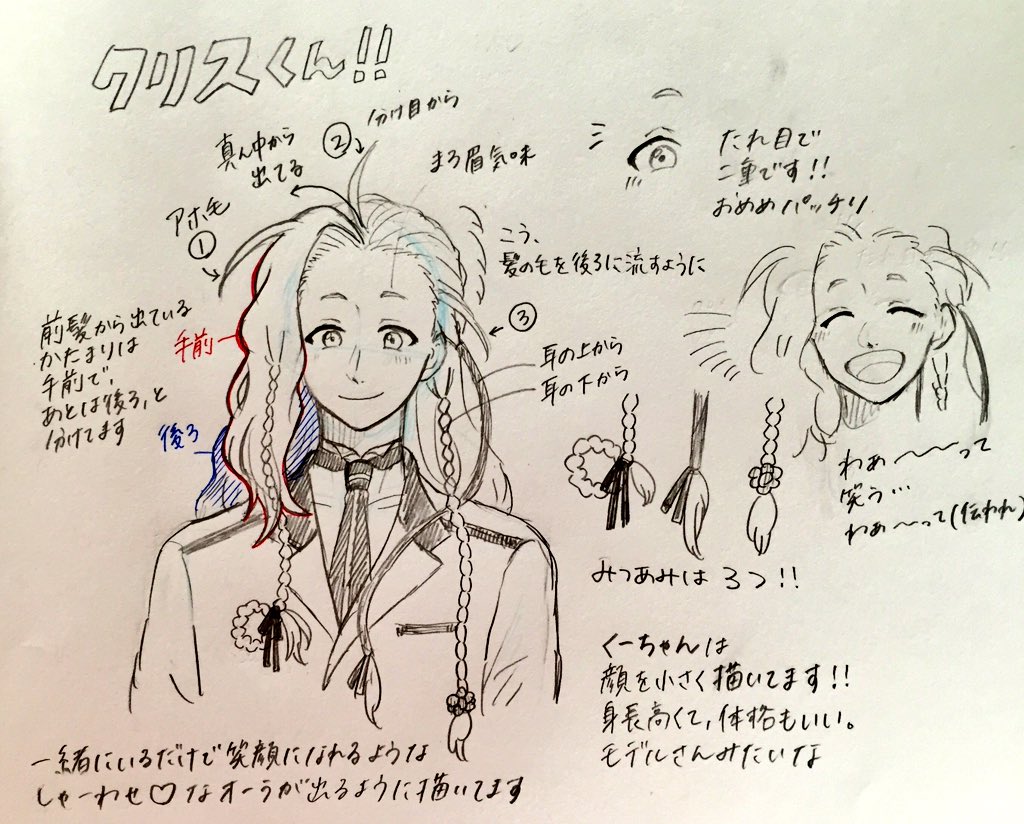 クリスくん!!
② 分け目から
真ん中から
出てる
アホ毛
①
まろ眉気味
たれ目で
二重です!!
おめめパッチリ
こう、
髪の毛を後ろに流すように
③
前髪から出ている
かたまりは
手前で、
あとは後ろ、と
分けてます
手前
後ろ
耳の上から
耳の下から
わぁ〜〜〜って
笑う…
わぁ〜〜って(伝われ)
みつあみは3つ!!
くーちゃんは
顔を小さく描いてます!!
身長高くて、体格もいい。
モデルさんみたいな
一緒にいるだけで笑顔になれるような
しゃーわせ♡なオーラが出るように描いてます